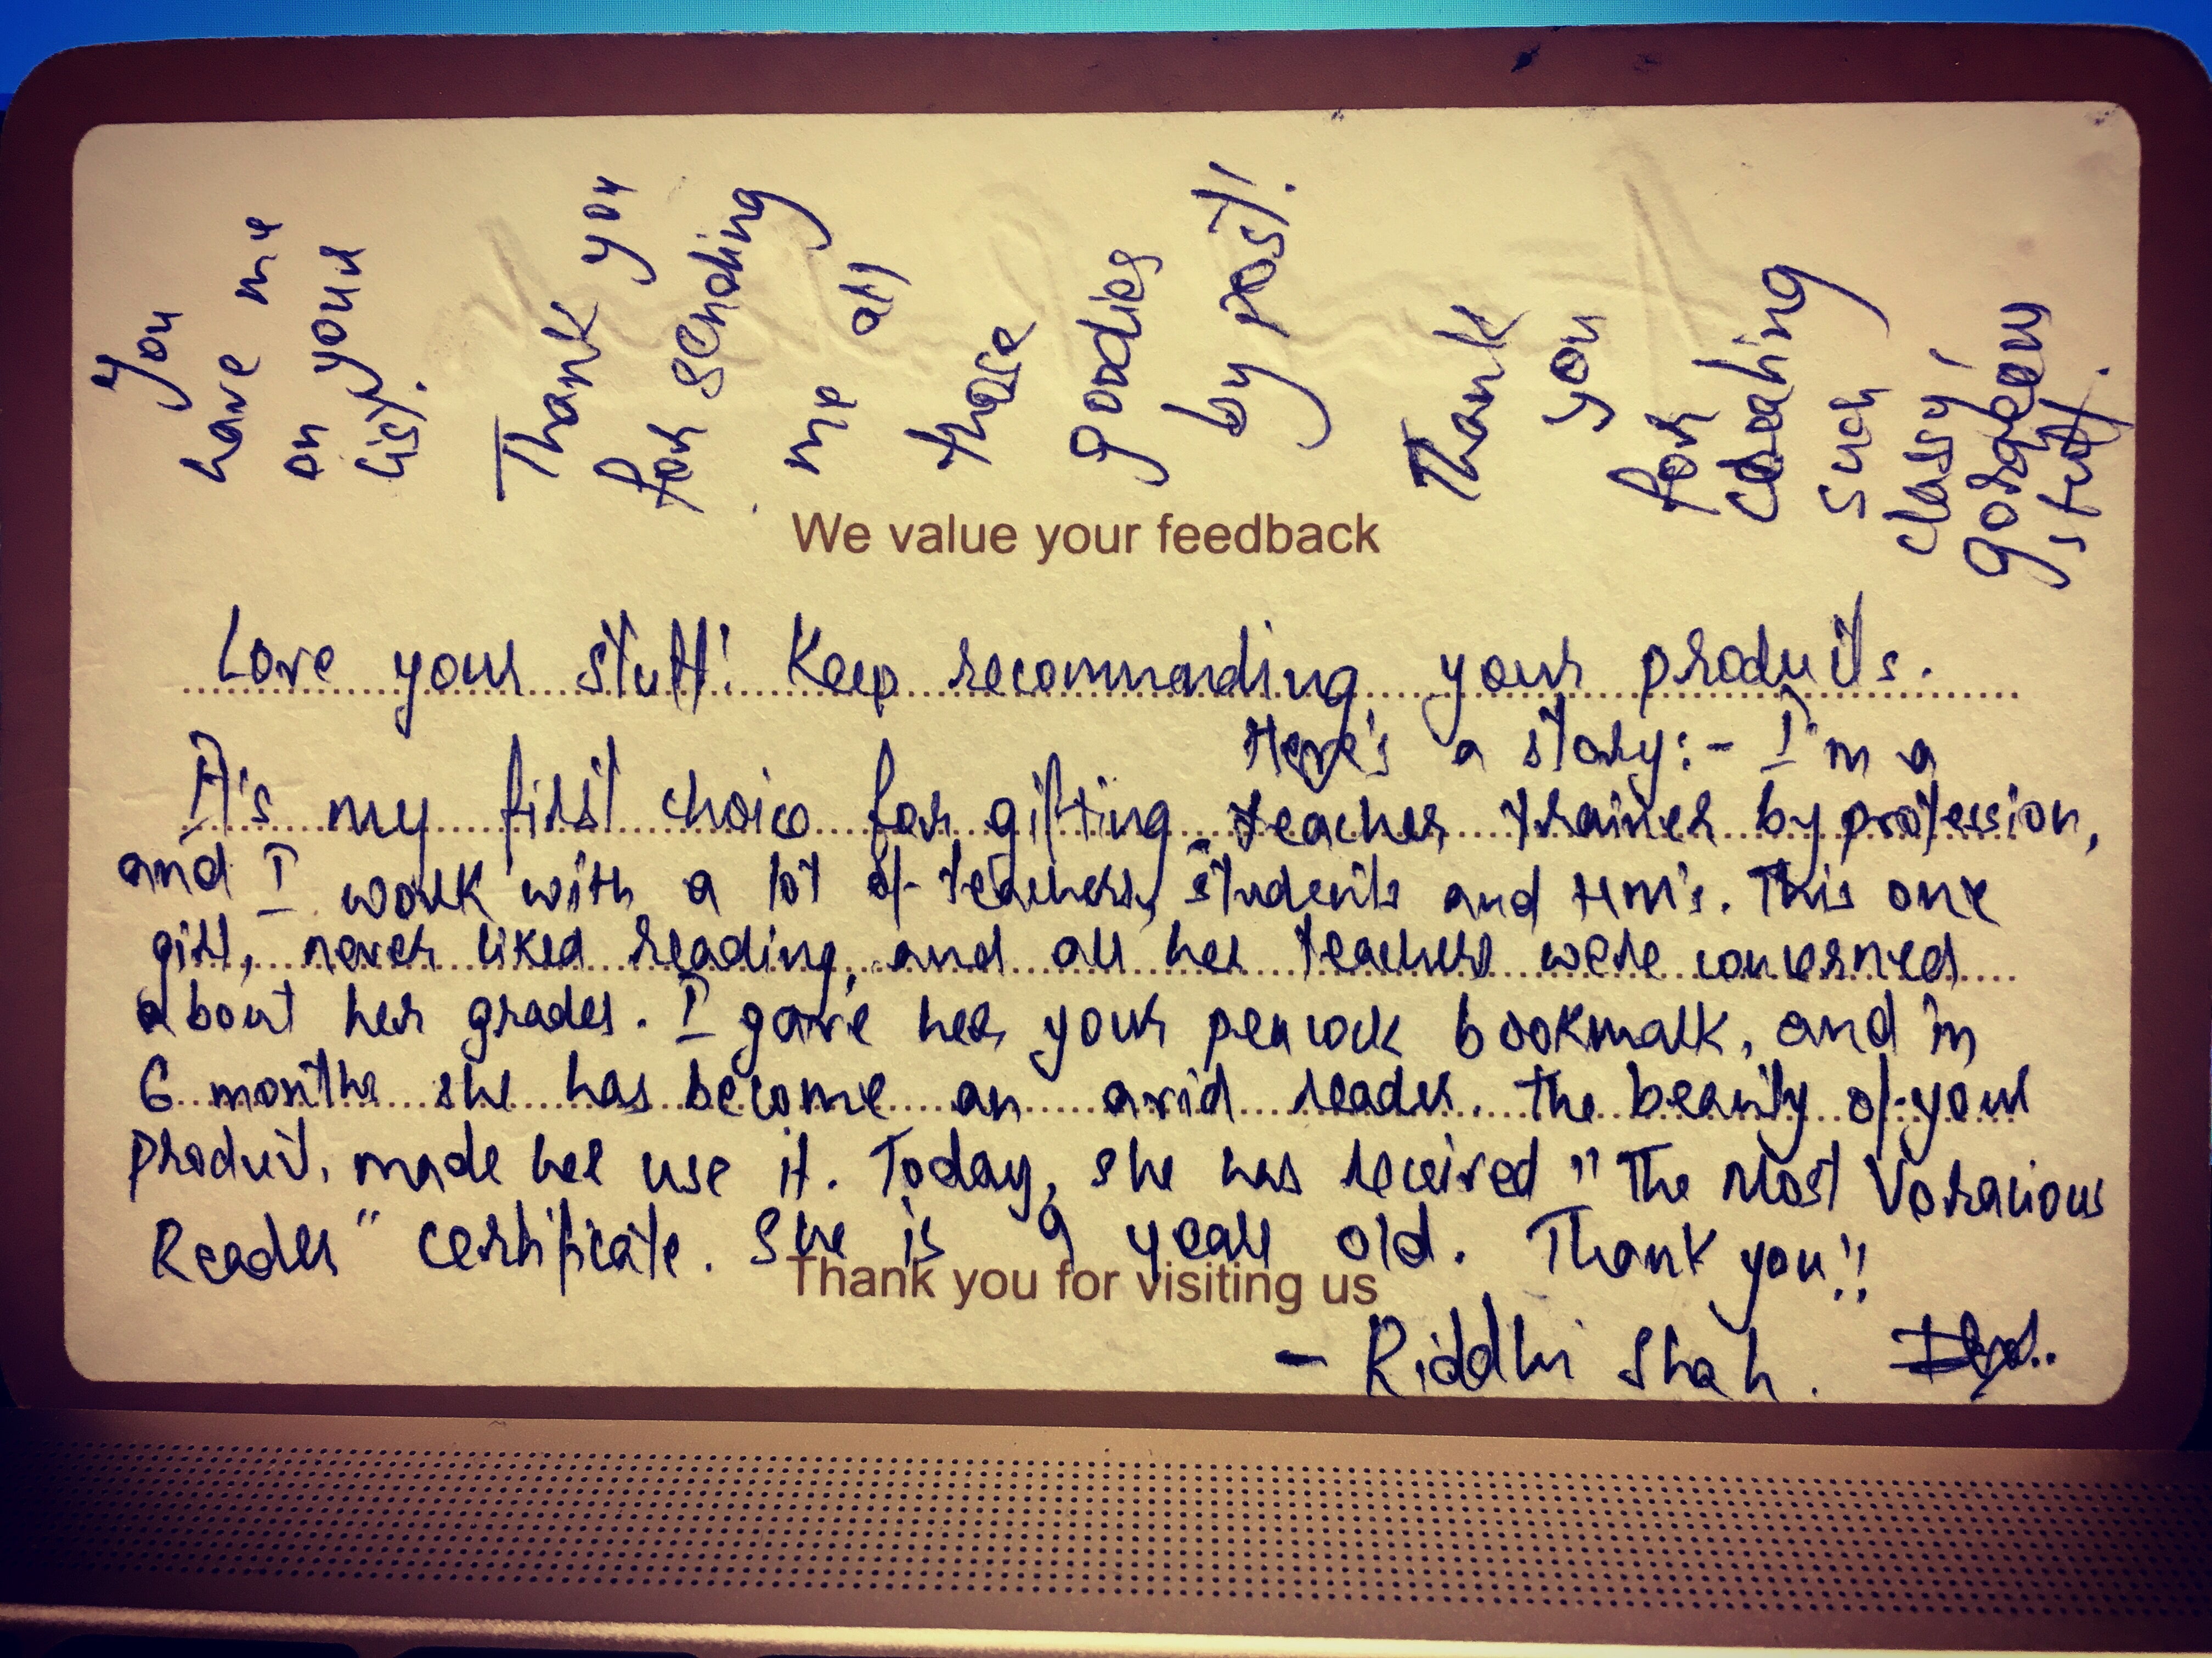 You
have me
on your
list.
Thank you
for sending
me all
those
goodies
by post!
Thank
you
for
creating
such
classy,
gorgeous
stuff.
We value your feedback
Love your stuff! Keep recommending your products.
Here's a story:- I'm a
It's my first choice for gifting. teacher trainer by profession,
and I work with a lot of teachers, students and HM's. This one
girl, never liked reading, and all her teachers were concerned
about her grades. I gave her your peacock bookmark, and in
6 months she has become an avid reader. The beauty of your
product, made her use it. Today, she has received "The Most Voracious
Reader" certificate. She is 9 years old. Thank you!!
Thank you for visiting us
- Riddhi Shah.